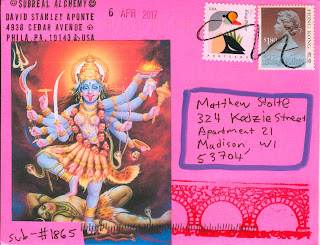 © SUBREAL ALCHEMY ©
DAVID STANLEY APONTE
4938 CEDAR AVENUE
PHILA. PA. 19143 USA
6 APR 2017
USA
HONG KONG
Matthew Stolte
324 Kedzie Street
Apartment 21
Madison, WI
53704
Sub-#1865